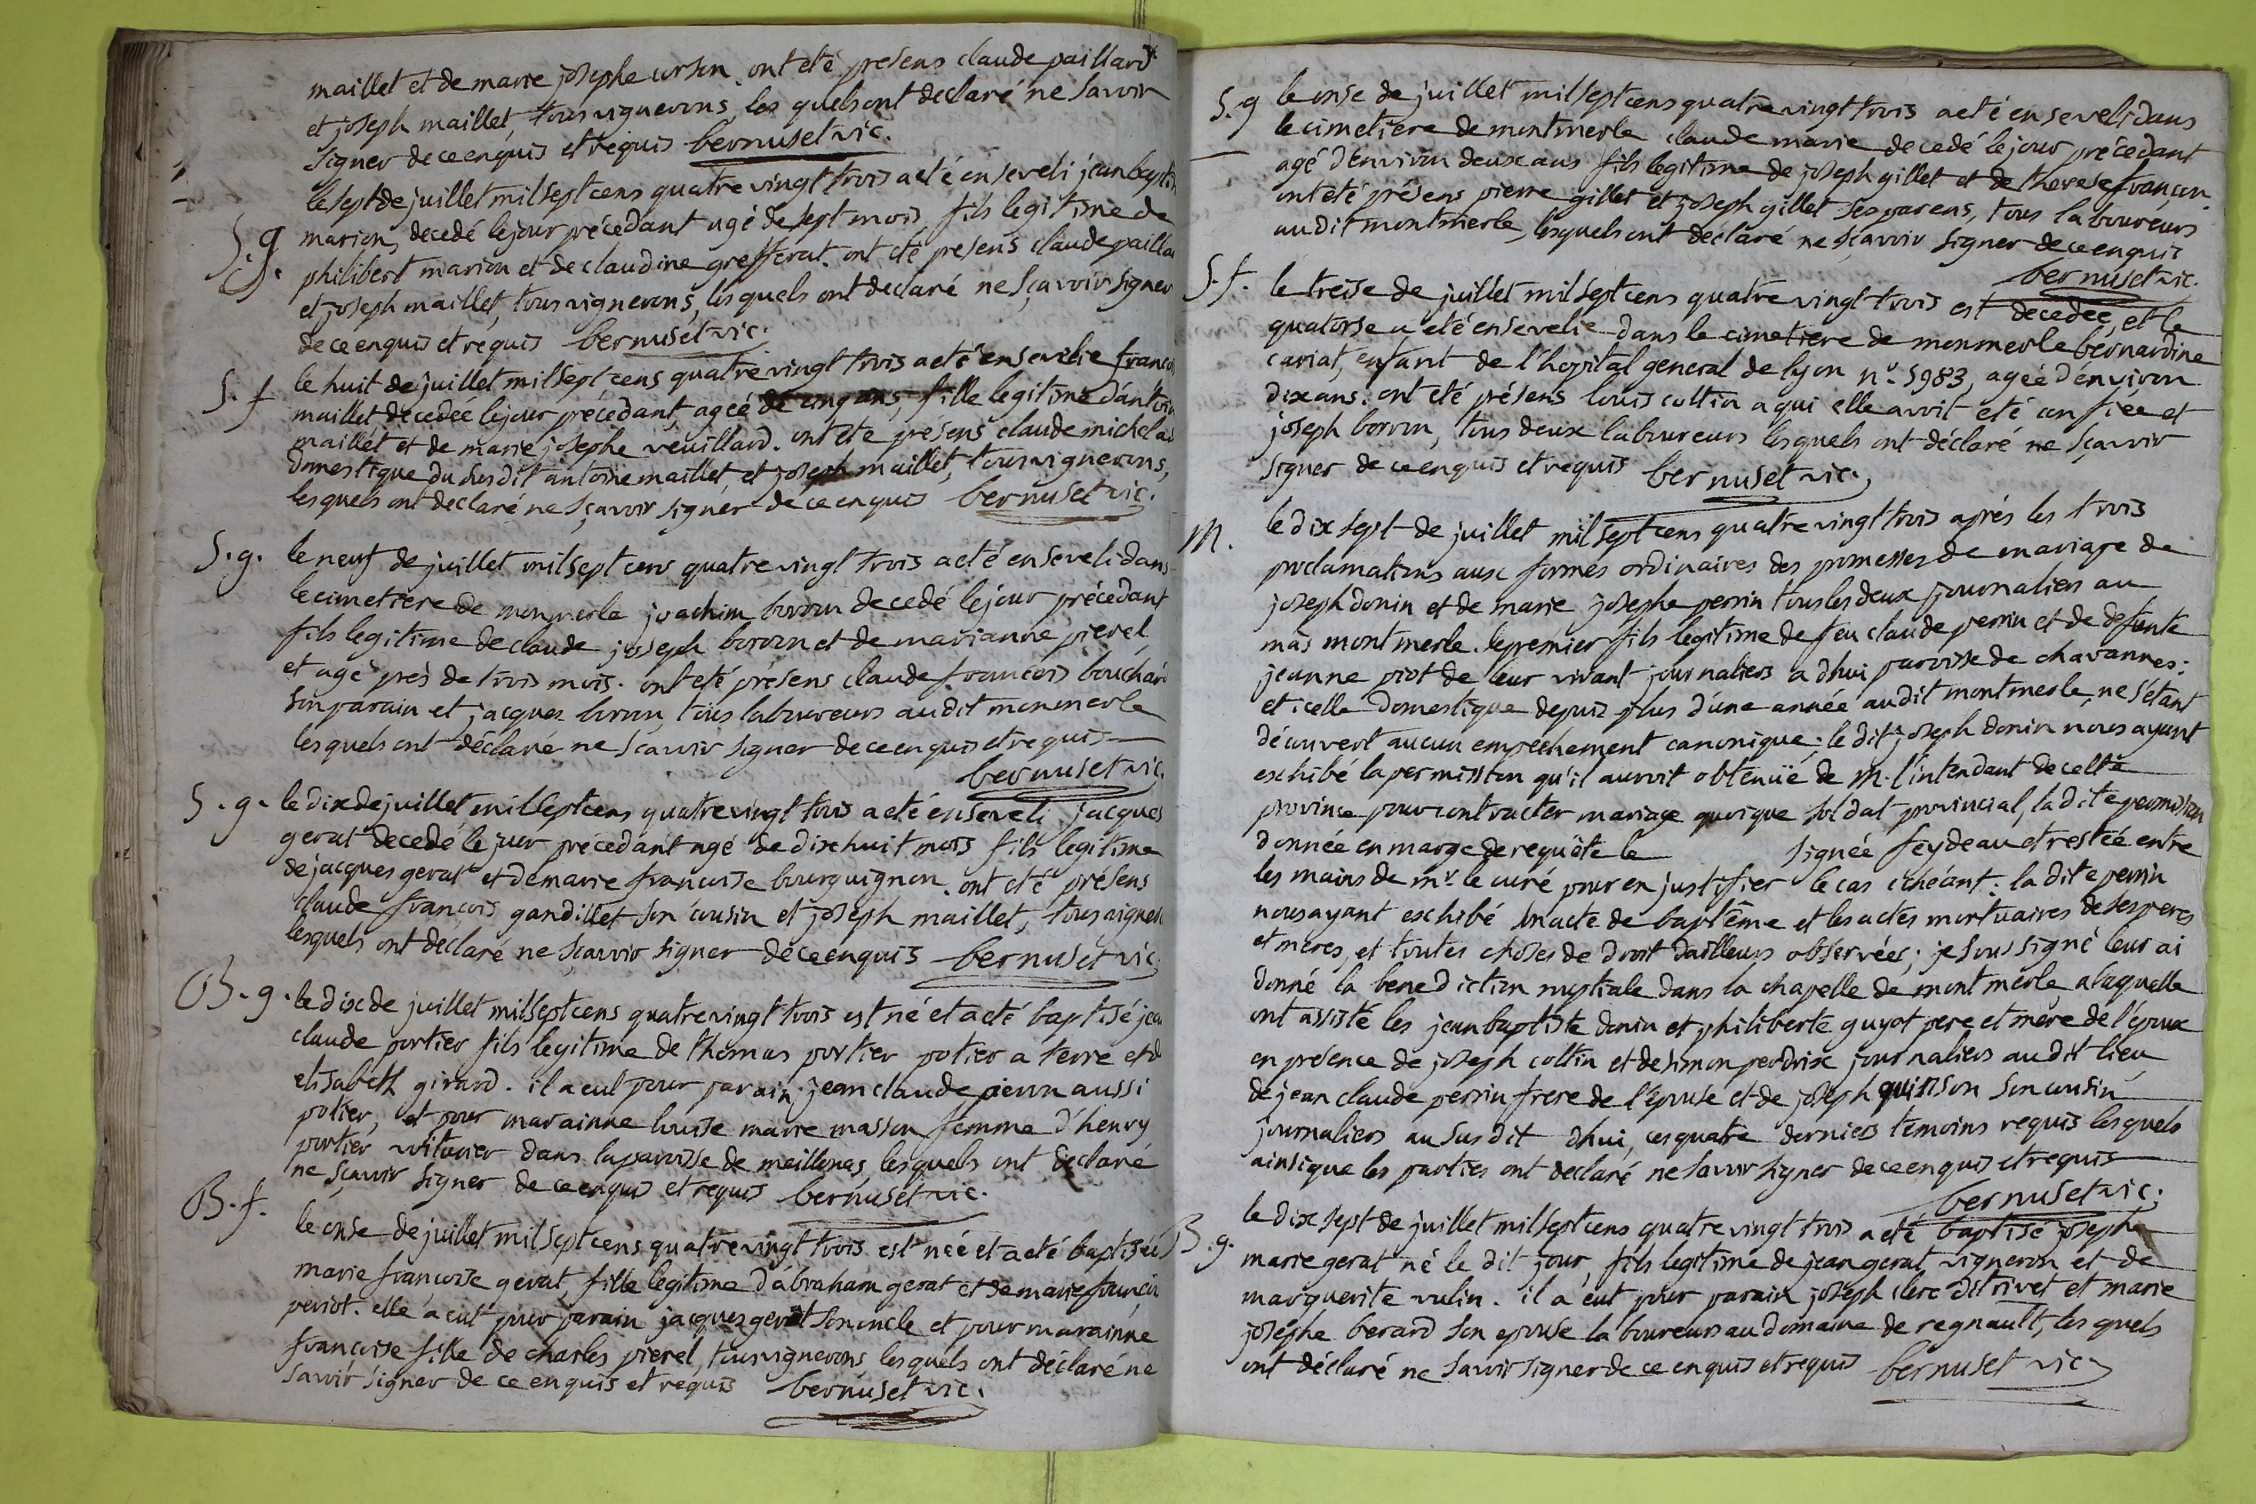 maillet et de marie josephe curson. ont eté presens claude paillard
et joseph maillet, tous vignerons, les quels ont declaré ne savoir
signer de ce enquis et requis bernuset vic.
le sept de juillet mil sept cens quatre vingt trois a eté enseveli jean baptis
S. g. marion, decedé le jour précédant agé de sept mois, fils legitime de
philibert marion et de claudine grefferat. ont été presens claude paillar
et joseph maillet, tous vignerons, lesquels ont declaré ne sçavoir signer
de ce enquis et requis bernuset vic.
S. f le huit de juillet mil sept cens quatre vingt trois a eté ensevelie françoi
maillet, decedée le jour précedant, ageé de cinq ans, fille legitime d'antoin
maillet et de marie josephe veuillard. ont eté présens claude michela
domestique du susdit antoine maillet, et joseph maillet, tous vignerons,
lesquels ont declaré ne sçavoir signer de ce enquis bernuset vic.
S. g. le neuf de juillet mil sept cens quatre vingt trois a eté enseveli dans
le cimetiere de monmerle joachim boron decedé le jour précédant
fils legitime de claude joseph boron et de marianne pierel
et agé près de trois mois. ont eté présens claude françois bouchar
son parain et jacques boron, tous laboureurs au dit monmerle
lesquels ont déclaré ne scavoir signer de ce enquis et requis
bernuset vic.
S. g. le dix de juillet mil sept cens quatre vingt trois a eté enseveli jacques
gerat decedé le jour précédant agé de dix huit mois fils legitime
de jacques gerat et de marie françoise bourguignon. ont eté présens
claude françois gandillet son cousin et joseph maillet, tous vigner
lesquels ont declaré ne sçavoir signer de ce enquis bernuset vic.
B. g. le dix de juillet mil sept cens quatre vingt trois est né et a eté baptisé jea
claude portier fils legitime de thomas portier potier a terre et d
elisabeth girard. il a eut pour parain jean claude pieron aussi
potier, et pour marainne louise marie masson femme d'henry
portier voiturier dans la paroisse de meillonas, lesquels ont declaré
ne sçavoir signer de ce enquis et requis bernuset vic.
B. f. le onse de juillet mil sept cens quatre vingt trois est née et a eté baptisée
marie françoise gerat, fille legitime d'abraham gerat et de marie françoi
periot. elle a eut pour parain jacques gerat son oncle et pour marainne
françoise fille de charles pierel, tous vignerons lesquels ont déclaré ne
savoir signer de ce enquis et requis bernuset vic.
S. g le onse de juillet mil sept cens quatre vingt trois a eté enseveli dans
le cimetiere de montmerle claude marie decedé le jour précédant
agé d'environ deux ans fils legitime de joseph gillet et de therese françon.
ont eté présens pierre gillet et joseph gillet ses parens, tous laboureurs
au dit montmerle, lesquels ont declaré ne sçavoir signer de ce enquis
bernuset vic.
S. f. le treise de juillet mil sept cens quatre vingt trois est decedée, et le
quatorse a eté ensevelie dans le cimetiere de monmerle bernardine
cariat, enfant de l'hopital general de lyon n°. 5983, ageé d'environ
dix ans. ont eté présens louis cottin a qui elle avoit eté confiée et
joseph boron, tous deux laboureurs lesquels ont déclaré ne sçavoir
signer de ce enquis et requis bernuset vic.
M. le dix sept de juillet mil sept cens quatre vingt trois après les trois
proclamations aux formes ordinaires des promesses de mariage de
joseph donin et de marie josephe perrin tous les deux journaliers au
mas montmerle. le premier fils legitime de feu claude perrin et de defunte
jeanne piot de leur vivant journaliers a dhui paroisse de chavannes:
et icelle domestique depuis plus d'une année au dit montmerle, ne s'étant
découvert aucun empechement canonique; le dit joseph donin nous ayant
exhibé la permission qu'il auroit obtenuë de M. l'intendant de cette
province pour contracter mariage quoique soldat provincial, la dite permission
donnée en marge de requête le signée feydeau et restée entre
les mains de mr. le curé pour en justifier le cas echéant: la dite perrin
nous ayant exhibé un acte de baptême et les actes mortuaires de ses peres
et meres, et toutes choses de droit dailleurs observées; je soussigné leur ai
donné la benediction nuptiale dans la chapelle de montmerle, a laquelle
ont assisté les jean baptiste donin et philiberte guyot pere et mere de l'époux
en présence de joseph cottin et de simon perdrix journaliers au dit lieu
de jean claude perrin frere de l'epouse et de joseph quinson son cousin
journaliers au susdit dhui, ces quatre derniers temoins requis lesquels
ainsi que les parties ont declaré ne savoir signer de ce enquis et requis
bernuset vic.
B. g. le dix sept de juillet mil sept cens quatre vingt trois a eté baptisé joseph
marie gerat né le dit jour, fils legitime de jean gerat, vigneron et de
marguerite vulin. il a eut pour parain joseph clerc dit rivet et marie
josephe berard son epouse laboureurs au domaine de regnault, les quels
ont déclaré ne savoir signer de ce enquis et requis bernuset vic